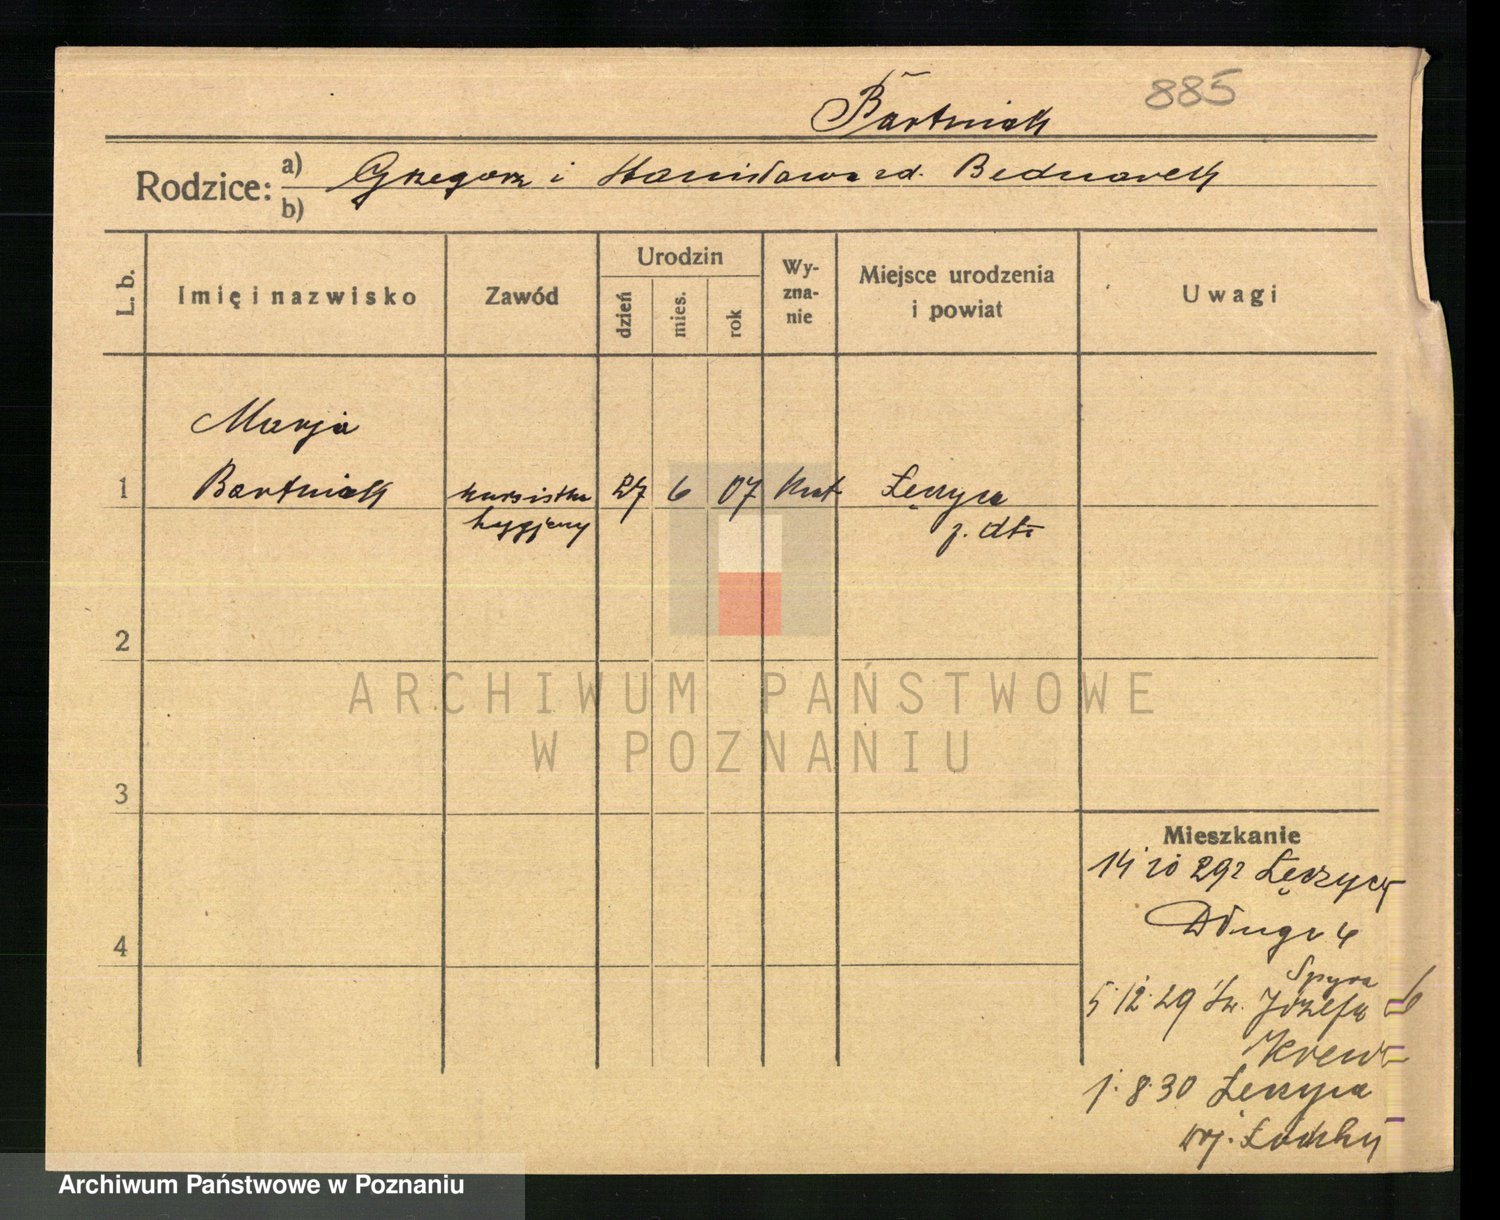 885
Bartniak
Rodzice: a) Grzegorz i Stanisława zd. Bednarek
b)
L. b.
Imię i nazwisko
Zawód
Urodzin
dzień
mies.
rok
Wy-
zna-
nie
Miejsce urodzenia
i powiat
Uwagi
Marja
1 Bartniak kursistka 27 6 07 kat Łęczyca
hygjeny p. dto
2
ARCHIWUM PAŃSTWOWE
W POZNANIU
3
Mieszkanie
14 10 29 z Łęczycy
4
Długa 4
5.12.29 Św. Józefa 6
1.8.30 Łęczyca
woj. Łódzki
Archiwum Państwowe w Poznaniu